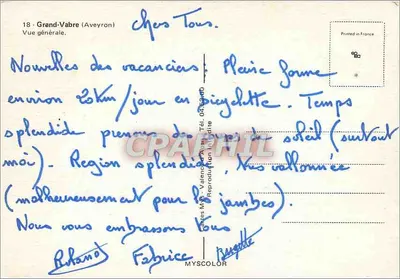 18 - Grand-Vabre (Aveyron)
Vue générale.
Chers Tous.
Printed in France
Nouvelles des vacanciers. Pleine forme
environ 20km/jour en bicyclette. Temps
splendide prenons des de soleil (surtout
moi). Region splendide. Très vallonnée
(malheureusement pour les jambes).
Nous vous embrassons tous
Roland Fabrice Brigitte
CPARAMA
MYSCOLOR